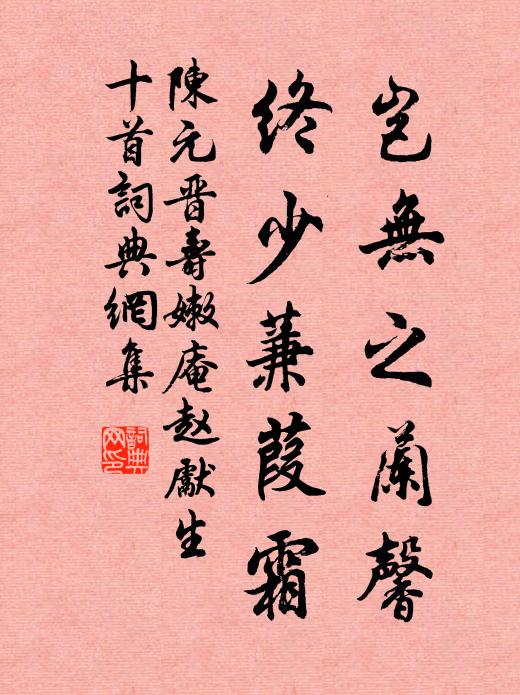 岂無之蘭馨
終少蒹葭霜
陳元晋壽嫩庵赵獻生
十首詞典網集
詞典網印